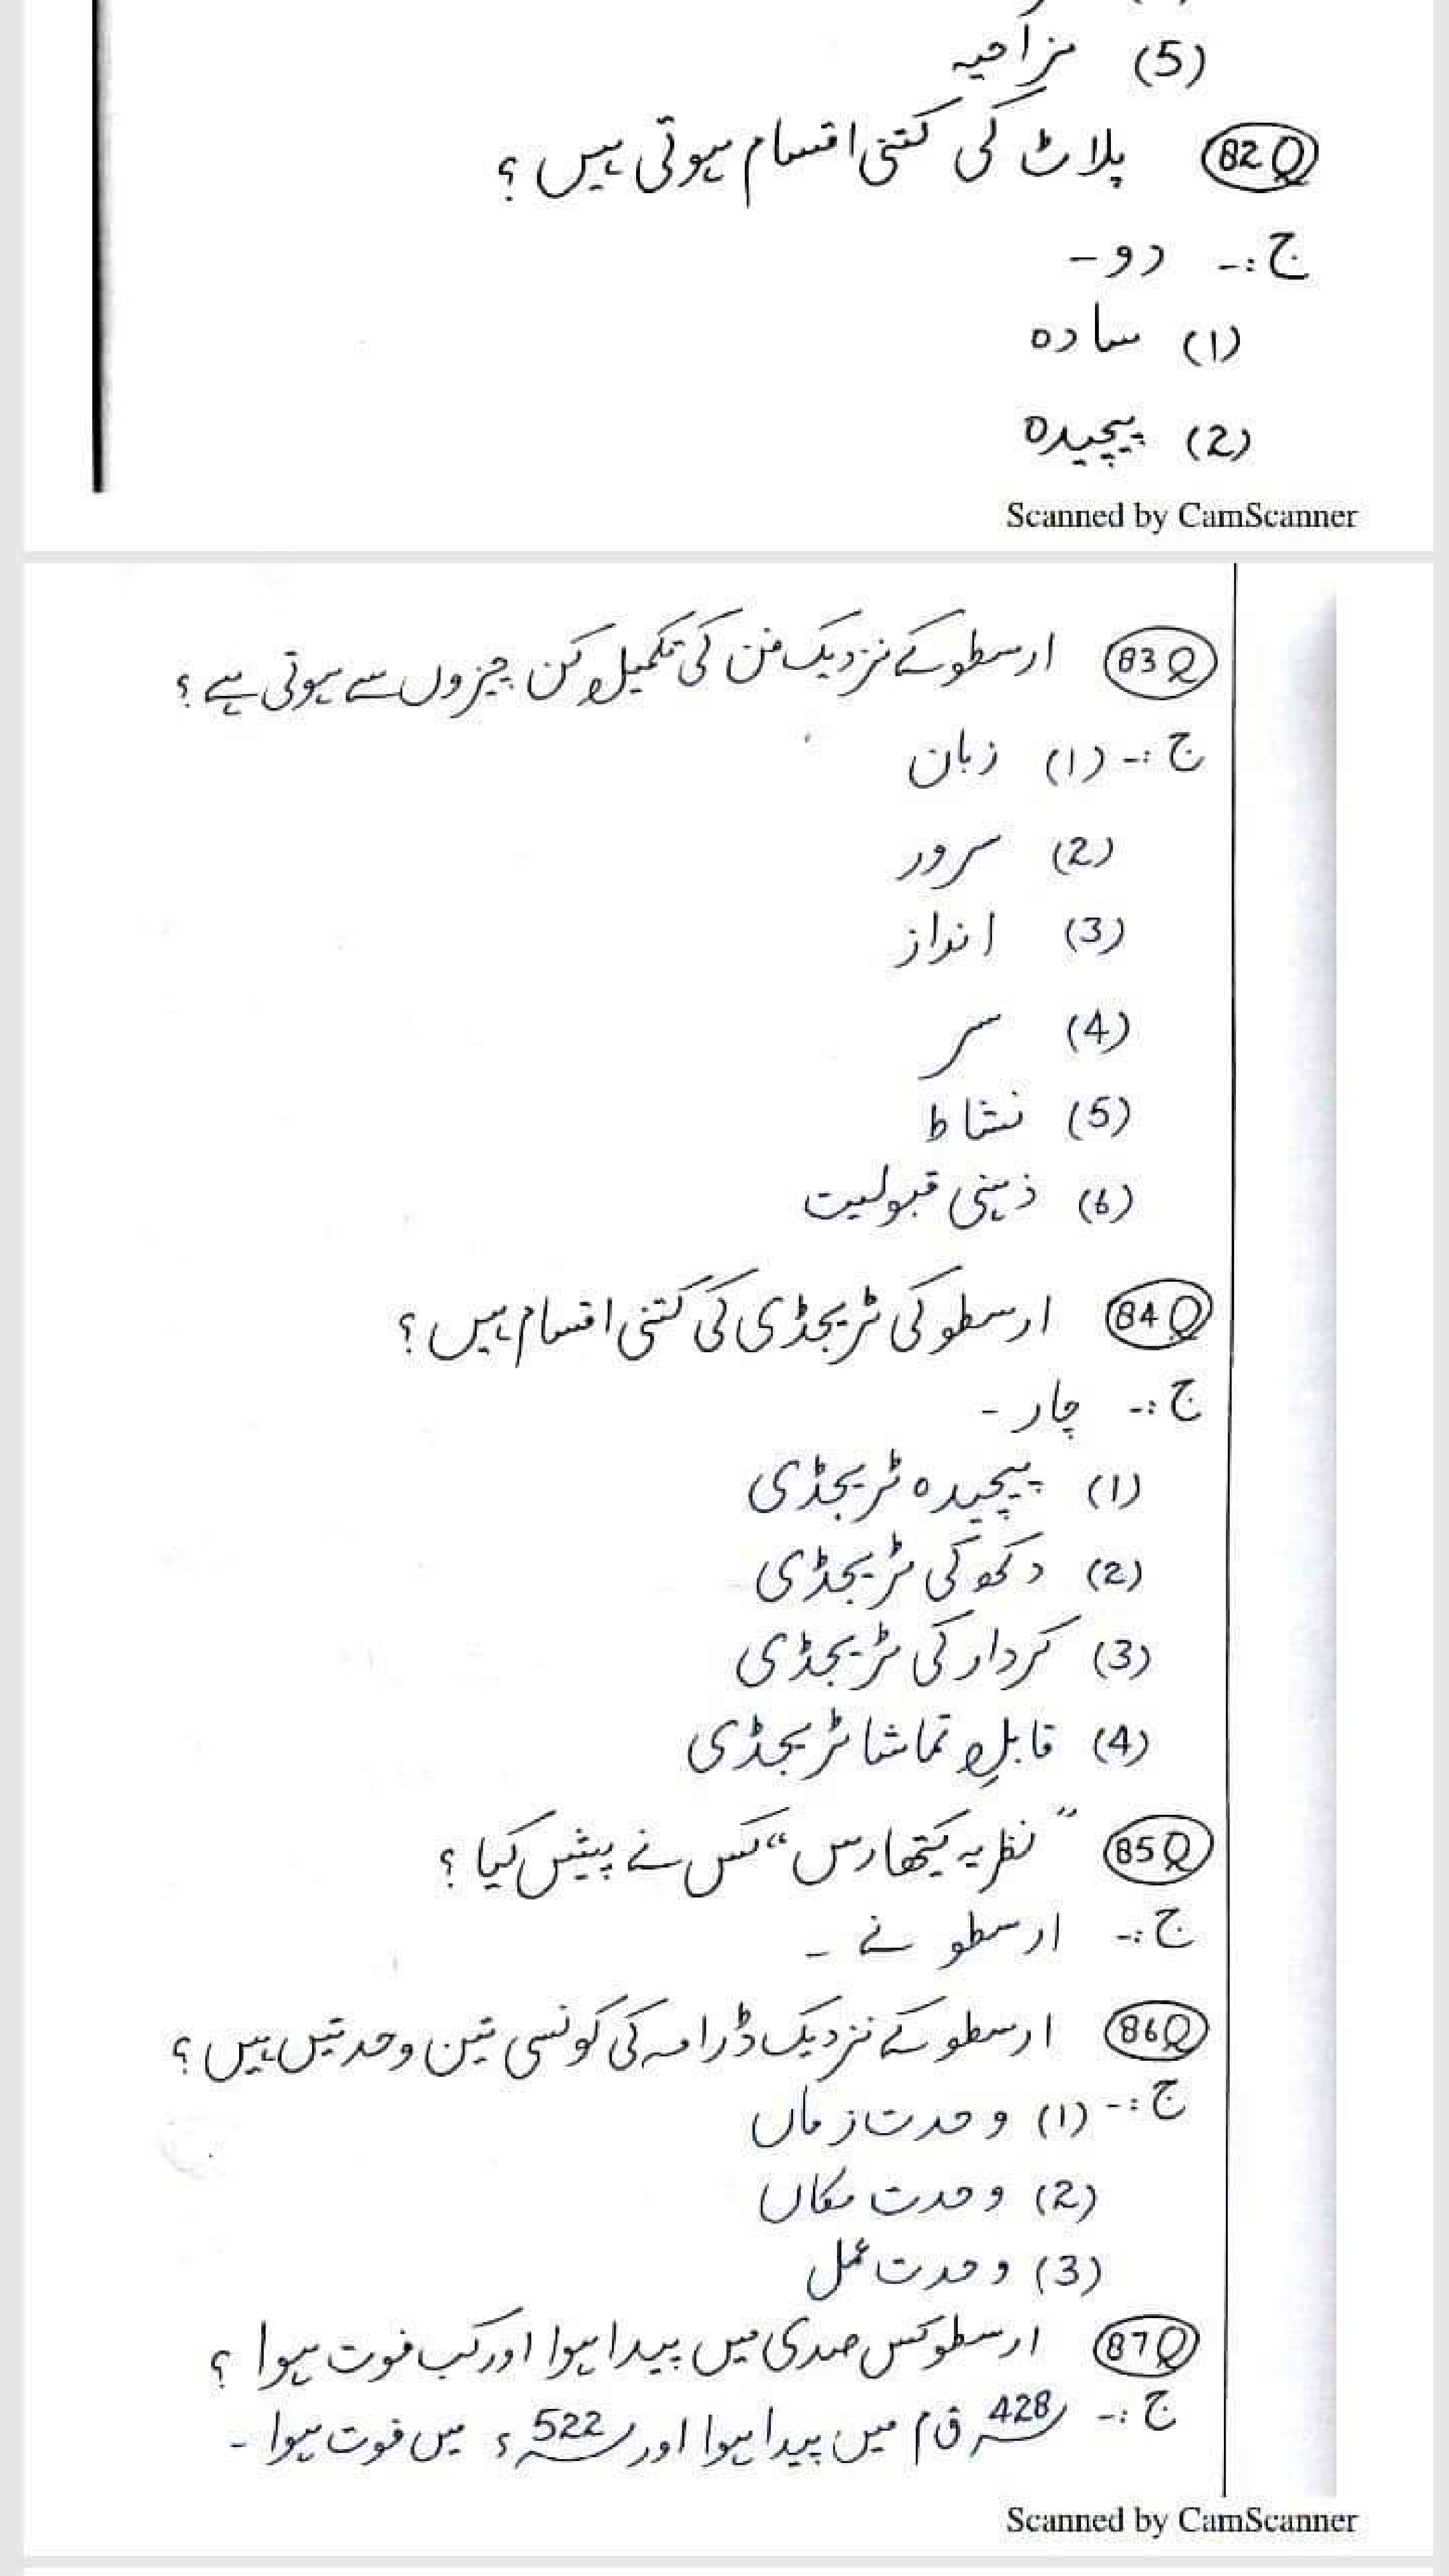 (5) مزاحیہ
82Q پلاٹ کی کتنی اقسام ہوتی ہیں ؟
ج :۔ دو ۔
(1) سادہ
(2) پیچیدہ
Scanned by CamScanner
83Q ارسطو کے نزدیک فن کی تکمیل کن چیزوں سے ہوتی ہے ؟
ج :۔ (1) زبان
(2) سرور
(3) انداز
(4) سر
(5) نشاط
(6) ذہنی قبولیت
84Q ارسطو کی ٹریجڈی کی کتنی اقسام ہیں ؟
ج :۔ چار ۔
(1) پیچیدہ ٹریجڈی
(2) دکھ کی ٹریجڈی
(3) کردار کی ٹریجڈی
(4) قابلِ تماشا ٹریجڈی
85Q ”نظریہ کیتھارس“ کس نے پیش کیا ؟
ج :۔ ارسطو نے ۔
86Q ارسطو کے نزدیک ڈرامہ کی کونسی تین وحدتیں ہیں ؟
ج :۔ (1) وحدت زماں
(2) وحدت مکاں
(3) وحدت عمل
87Q ارسطو کس صدی میں پیدا ہوا اور کب فوت ہوا ؟
ج :۔ 428 ق م میں پیدا ہوا اور 522ء میں فوت ہوا ۔
Scanned by CamScanner